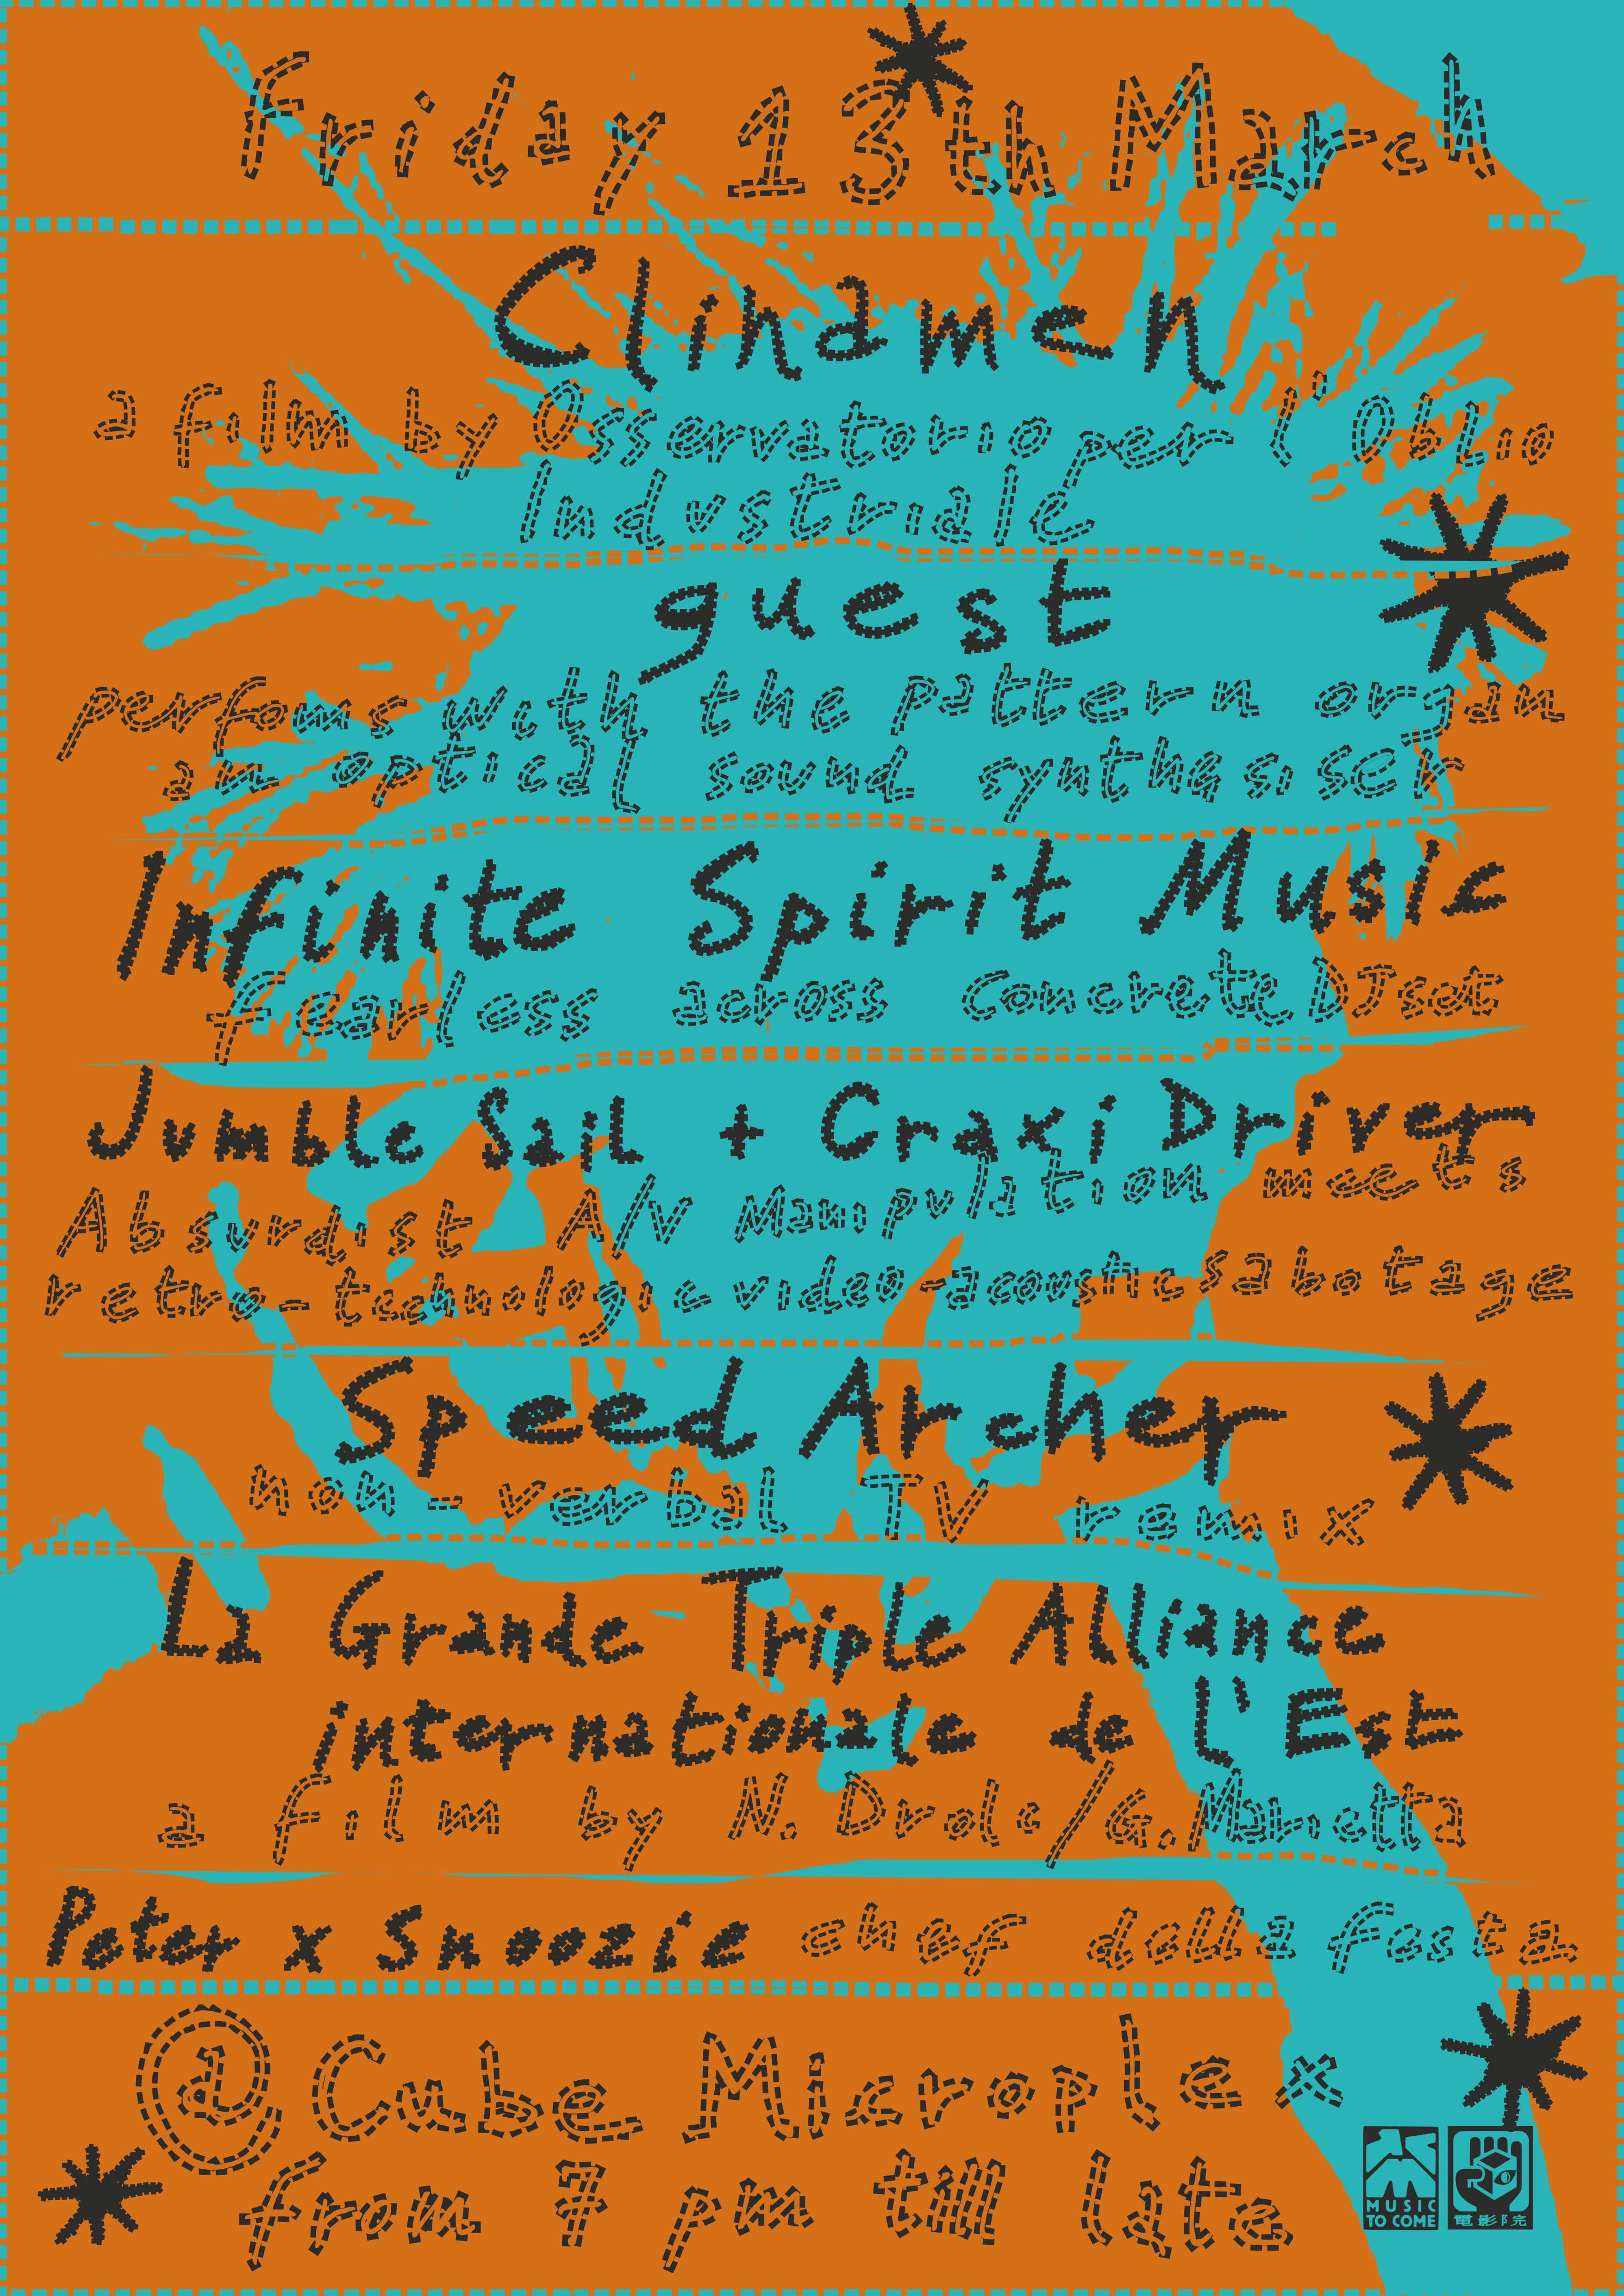 Friday 13th March
Clinamen
a film by Osservatorio per l'Oblio
Industriale
guest
perfoms with the pattern organ
an optical sound synthesiser
Infinite Spirit Music
fearless across concrete DJ set
Jumble Sail + Craxi Driver
Absurdist A/V Manipulation meets
retro-technologic video-acoustic sabotage
Speed Archer
non-verbal TV remix
La Grande Triple Alliance
internationale de l'Est
a film by N. Drolc/G. Marietta
Peter x Snoozie chef della festa
@ Cube Microplex
from 7 pm till late
MUSIC
TO COME
電影院